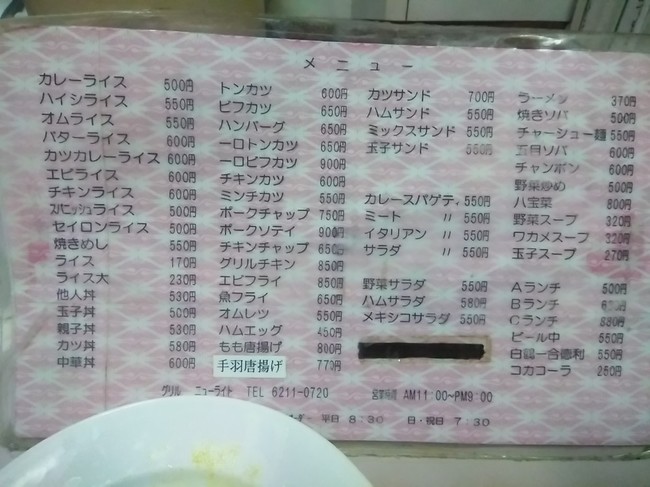 メニュー
カレーライス 500円
ハイシライス 550円
オムライス 550円
バターライス 600円
カツカレーライス 600円
エビライス 600円
チキンライス 600円
スパニッシュライス 500円
セイロンライス 500円
焼きめし 550円
ライス 170円
ライス大 230円
他人丼 530円
玉子丼 500円
親子丼 530円
カツ丼 580円
中華丼 600円
トンカツ 600円
ビフカツ 650円
ハンバーグ 650円
一口トンカツ 650円
一口ビフカツ 900円
チキンカツ 600円
ミンチカツ 550円
ポークチャップ 750円
ポークソテイ 900円
チキンチャップ 650円
グリルチキン 850円
エビフライ 850円
魚フライ 650円
オムレツ 550円
ハムエッグ 450円
もも唐揚げ 800円
手羽唐揚げ 770円
カツサンド 700円
ハムサンド 550円
ミックスサンド 550円
玉子サンド 550円
カレースパゲティ 550円
ミート 〃 550円
イタリアン 〃 550円
サラダ 〃 550円
野菜サラダ 550円
ハムサラダ 580円
メキシコサラダ 550円
ラーメン 370円
焼きソバ 500円
チャーシュー麺 550円
五目ソバ 600円
チャンポン 600円
野菜炒め 500円
八宝菜 800円
野菜スープ 320円
ワカメスープ 320円
玉子スープ 270円
Aランチ 500円
Bランチ
Cランチ 880円
ビール中 550円
白鶴一合徳利 550円
コカコーラ 250円
グリル ニューライト TEL 6211-0720 営業時間 AM11:00~PM9:00
平日 8:30 日・祝日 7:30